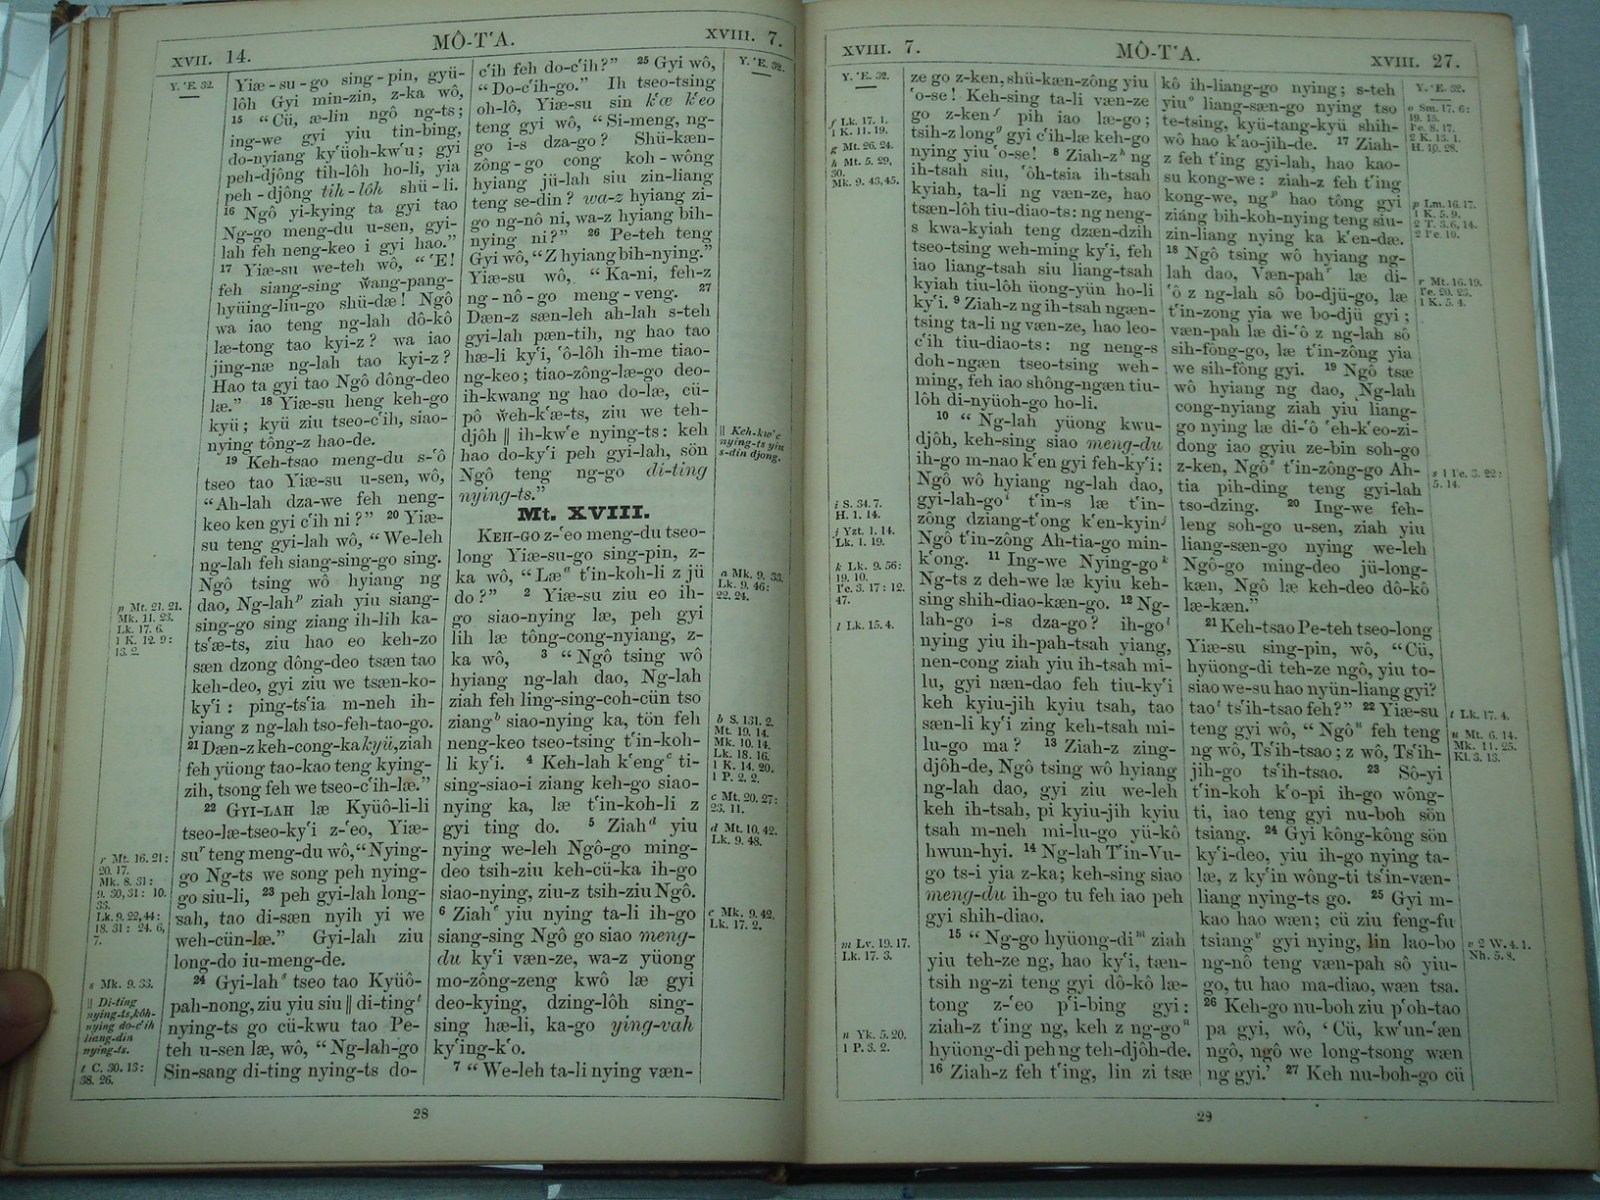 XVII. 14.
MÔ-TʻA.
XVIII. 7.
Y. ʻE. 32.
Yiæ-su-go sing-pin, gyü-
lôh Gyi min-zin, z-ka wô,
15 “Cü, æ-lin ngô ng-ts;
ing-we gyi yiu tin-bing,
do-nyiang kyʻüoh-kwʻu; gyi
peh-djông tih-lôh ho-li, yia
peh-djông tih-lôh shü-li.
16 Ngô yi-kying ta gyi tao
Ng-go meng-du u-sen, gyi-
lah feh neng-keo i gyi hao.”
17 Yiæ-su we-teh wô, “ʻE!
feh siang-sing wang-pang-
hyüing-liu-go shü-dæ! Ngô
wa iao teng ng-lah dô-kô
læ-tong tao kyi-z? wa iao
jing-næ ng-lah tao kyi-z?
Hao ta gyi tao Ngô dông-deo
læ.” 18 Yiæ-su heng keh-go
kyü; kyü ziu tseo-cʻih, siao-
nying tông-z hao-de.
19 Keh-tsao meng-du s-ʻô
tseo tao Yiæ-su u-sen, wô,
“Ah-lah dza-we feh neng-
keo ken gyi cʻih ni?” 20 Yiæ-
su teng gyi-lah wô, “We-leh
ng-lah feh siang-sing-go sing.
Ngô tsing wô hyiang ng
dao, Ng-lahᵖ ziah yiu siang-
sing-go sing ziang ih-lih ka-
tsʻæ-ts, ziu hao eo keh-zo
sæn dzong dông-deo tsæn tao
keh-deo, gyi ziu we tsæn-ko-
kyʻi: ping-tsʻia m-neh ih-
yiang z ng-lah tso-feh-tao-go.
21 Dæn-z keh-cong-ka kyü, ziah
feh yüong tao-kao teng kying-
zih, tsong feh we tseo-cʻih-læ.”
22 GYI-LAH læ Kyüô-li-li
tseo-læ-tseo-kyʻi z-ʻeo, Yiæ-
suʳ teng meng-du wô, “Nying-
go Ng-ts we song peh nying-
go siu-li, 23 peh gyi-lah long-
sah, tao di-sæn nyih yi we
weh-cün-læ.” Gyi-lah ziu
long-do iu-meng-de.
24 Gyi-lahˢ tseo tao Kyüô-
pah-nong, ziu yiu siu ‖ di-tingᵗ
nying-ts go cü-kwu tao Pe-
teh u-sen læ, wô, “Ng-lah-go
Sin-sang di-ting nying-ts do-
p Mt. 21. 21.
Mk. 11. 23.
Lk. 17. 6.
1 K. 12. 9:
13. 2.
r Mt. 16. 21:
20. 17.
Mk. 8. 31:
9. 30, 31: 10.
33.
Lk. 9. 22, 44:
18. 31: 24. 6,
7.
s Mk. 9. 33.
‖ Di-ting
nying-ts, kôh-
nying do-cʻih
liang-din
nying-ts.
t C. 30. 13:
38. 26.
cʻih feh do-cʻih?” 25 Gyi wô,
“Do-cʻih-go.” Ih tseo-tsing
oh-lô, Yiæ-su sin kʻæ kʻeo
teng gyi wô, “Si-meng, ng-
go i-s dza-go? Shü-kæn-
zông-go cong koh-wông
hyiang jü-lah siu zin-liang
teng se-din? wa-z hyiang zi-
go ng-nô ni, wa-z hyiang bih-
nying ni?” 26 Pe-teh teng
Gyi wô, “Z hyiang bih-nying.”
Yiæ-su wô, “Ka-ni, feh-z
ng-nô-go meng-veng. 27
Dæn-z sæn-leh ah-lah s-teh
gyi-lah pæn-tih, ng hao tao
hæ-li kyʻi, ʻô-lôh ih-me tiao-
ng-keo; tiao-zông-læ-go deo-
ih-kwang ng hao do-læ, cü-
pô weh-kʻæ-ts, ziu we teh-
djôh ‖ ih-kwʻe nying-ts: keh
hao do-kyʻi peh gyi-lah, sön
Ngô teng ng-go di-ting
nying-ts.”
Mt. XVIII.
KEH-GO z-ʻeo meng-du tseo-
long Yiæ-su-go sing-pin, z-
ka wô, “Læᵃ tʻin-koh-li z jü
do?” 2 Yiæ-su ziu eo ih-
go siao-nying læ, peh gyi
lih læ tông-cong-nyiang, z-
ka wô, 3 “Ngô tsing wô
hyiang ng-lah dao, Ng-lah
ziah feh ling-sing-coh-cün tso
ziangᵇ siao-nying ka, tön feh
neng-keo tseo-tsing tʻin-koh-
li kyʻi. 4 Keh-lah kʻengᶜ ti-
sing-siao-i ziang keh-go siao-
nying ka, læ tʻin-koh-li z
gyi ting do. 5 Ziahᵈ yiu
nying we-leh Ngô-go ming-
deo tsih-ziu keh-cü-ka ih-go
siao-nying, ziu-z tsih-ziu Ngô.
6 Ziahᵉ yiu nying ta-li ih-go
siang-sing Ngô go siao meng-
du kyʻi væn-ze, wa-z yüong
mo-zông-zeng kwô læ gyi
deo-kying, dzing-lôh sing-
sing hæ-li, ka-go ying-vah
kyʻing-kʻo.
7 “We-leh ta-li nying væn-
Y. ʻE. 32.
‖ Keh-kwʻe
nying-ts yiu
s-din djong.
a Mk. 9. 33.
Lk. 9. 46:
22. 24.
b S. 131. 2.
Mt. 19. 14.
Mk. 10. 14.
Lk. 18. 16.
1 K. 14. 20.
1 P. 2. 2.
c Mt. 20. 27:
23. 11.
d Mt. 10. 42.
Lk. 9. 48.
e Mk. 9. 42.
Lk. 17. 2.
28
XVIII. 7.
MÔ-TʻA.
XVIII. 27.
Y. ʻE. 32.
f Lk. 17. 1.
1 K. 11. 19.
g Mt. 26. 24.
h Mt. 5. 29,
30.
Mk. 9. 43, 45.
i S. 34. 7.
H. 1. 14.
j Yzt. 1. 14.
Lk. 1. 19.
k Lk. 9. 56:
19. 10.
Iʻe. 3. 17: 12.
47.
l Lk. 15. 4.
m Lv. 19. 17.
Lk. 17. 3.
n Yk. 5. 20.
1 P. 3. 2.
ze go z-ken, shü-kæn-zông yiu
ʻo-se! Keh-sing ta-li væn-ze
go z-kenᶠ pih iao læ-go;
tsih-z longᵍ gyi cʻih-læ keh-go
nying yiu ʻo-se! 8 Ziah-zʰ ng
ih-tsah siu, ʻôh-tsia ih-tsah
kyiah, ta-li ng væn-ze, hao
tsæn-lôh tiu-diao-ts: ng neng-
s kwa-kyiah teng dzæn-dzih
tseo-tsing weh-ming kyʻi, feh
iao liang-tsah siu liang-tsah
kyiah tiu-lôh üong-yün ho-li
kyʻi. 9 Ziah-z ng ih-tsah ngæn-
tsing ta-li ng væn-ze, hao leo-
cʻih tiu-diao-ts: ng neng-s
doh-ngæn tseo-tsing weh-
ming, feh iao shông-ngæn tiu-
lôh di-nyüoh-go ho-li.
10 “Ng-lah yüong kwu-
djôh, keh-sing siao meng-du
ih-go m-nao kʻen gyi feh-kyʻi:
Ngô wô hyiang ng-lah dao,
gyi-lah-goⁱ tʻin-s læ tʻin-
zông dziang-tʻong kʻen-kyinʲ
Ngô tʻin-zông Ah-tia-go min-
kʻong. 11 Ing-we Nying-goᵏ
Ng-ts z deh-we læ kyiu keh-
sing shih-diao-kæn-go. 12 Ng-
lah-go i-s dza-go? ih-goˡ
nying yiu ih-pah-tsah yiang,
nen-cong ziah yiu ih-tsah mi-
lu, gyi næn-dao feh tiu-kyʻi
keh kyiu-jih kyiu tsah, tao
sæn-li kyʻi zing keh-tsah mi-
lu-go ma? 13 Ziah-z zing-
djôh-de, Ngô tsing wô hyiang
ng-lah dao, gyi ziu we-leh
keh ih-tsah, pi kyiu-jih kyiu
tsah m-neh mi-lu-go yü-kô
hwun-hyi. 14 Ng-lah Tʻin-Vu-
go ts-i yia z-ka; keh-sing siao
meng-du ih-go tu feh iao peh
gyi shih-diao.
15 “Ng-go hyüong-diᵐ ziah
yiu teh-ze ng, hao kyʻi, tæn-
tsih ng-zi teng gyi dô-kô læ-
tong z-ʻeo pʻi-bing gyi:
ziah-z tʻing ng, keh z ng-goⁿ
hyüong-di peh ng teh-djôh-de.
16 Ziah-z feh tʻing, lin zi tsæ
kô ih-liang-go nying; s-teh
yiuᵒ liang-sæn-go nying tso
te-tsing, kyü-tang-kyü shih-
wô hao kʻao-jih-de. 17 Ziah-
z feh tʻing gyi-lah, hao kao-
su kong-we: ziah-z feh tʻing
kong-we, ngᵖ hao tông gyi
ziáng bih-koh-nying teng siu-
zin-liang nying ka kʻen-dæ.
18 Ngô tsing wô hyiang ng-
lah dao, Væn-pahʳ læ di-
ʻô z ng-lah sô bo-djü-go, læ
tʻin-zong yia we bo-djü gyi;
væn-pah læ di-ʻô z ng-lah sô
sih-fông-go, læ tʻin-zông yia
we sih-fông gyi. 19 Ngô tsæ
wô hyiang ng dao, Ng-lah
cong-nyiang ziah yiu liang-
go nying læ di-ʻô ʻeh-kʻeo-zi-
dong iao gyiu ze-bin soh-go
z-ken, Ngôˢ tʻin-zông-go Ah-
tia pih-ding teng gyi-lah
tso-dzing. 20 Ing-we feh-
leng soh-go u-sen, ziah yiu
liang-sæn-go nying we-leh
Ngô-go ming-deo jü-long-
kæn, Ngô læ keh-deo dô-kô
læ-kæn.”
21 Keh-tsao Pe-teh tseo-long
Yiæ-su sing-pin, wô, “Cü,
hyüong-di teh-ze ngô, yiu to-
siao we-su hao nyün-liang gyi?
taoᵗ tsʻih-tsao feh?” 22 Yiæ-su
teng gyi wô, “Ngôᵘ feh teng
ng wô, Tsʻih-tsao; z wô, Tsʻih-
jih-go tsʻih-tsao. 23 Sô-yi
tʻin-koh kʻo-pi ih-go wông-
ti, iao teng gyi nu-boh sön
tsiang. 24 Gyi kông-kông sön
kyʻi-deo, yiu ih-go nying ta-
læ, z kyʻin wông-ti tsʻin-væn-
liang nying-ts go. 25 Gyi m-
kao hao wæn; cü ziu feng-fu
tsiangᵛ gyi nying, lin lao-bo
ng-nô teng væn-pah sô yiu-
go, tu hao ma-diao, wæn tsa.
26 Keh-go nu-boh ziu pʻoh-tao
pa gyi, wô, ‘Cü, kwʻun-ʻæn
ngô, ngô we long-tsong wæn
ng gyi.’ 27 Keh nu-boh-go cü
Y. ʻE. 32.
o Sm. 17. 6:
19. 15.
Iʻe. 8. 17.
2 K. 13. 1.
H. 10. 28.
p Lm. 16. 17.
1 K. 5. 9.
2 T. 3. 6, 14.
2 Iʻe. 10.
r Mt. 16. 19.
Iʻe. 20. 23.
1 K. 5. 4.
s 1 Iʻe. 3. 22:
5. 14.
t Lk. 17. 4.
u Mt. 6. 14.
Mk. 11. 25.
Kl. 3. 13.
v 2 W. 4. 1.
Nh. 5. 8.
29